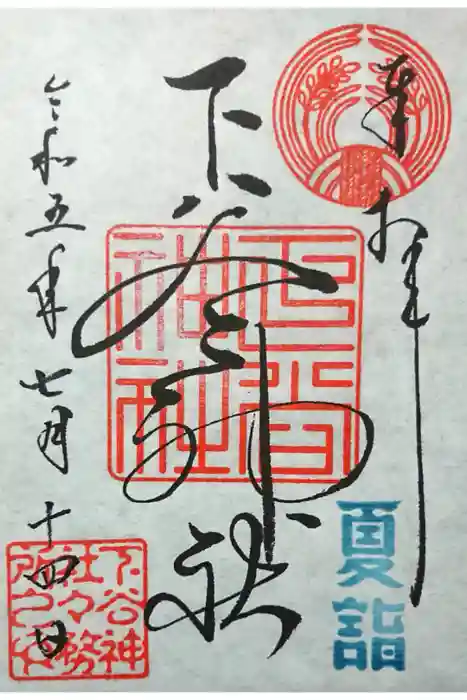 奉拝
下谷神社
令和五年七月十四日
夏詣
下谷神社
下谷神
社々務
所之印